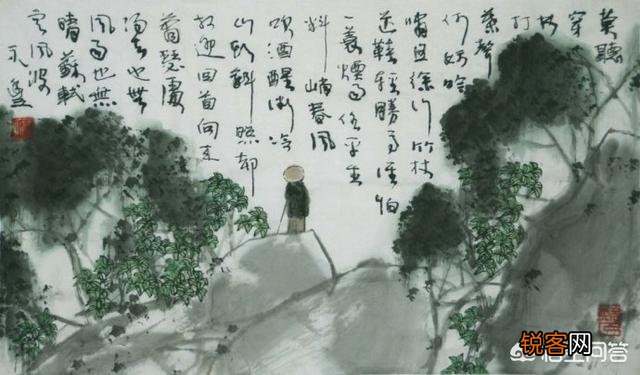 莫聽
穿
林
打
葉聲
何妨吟
嘯且徐行竹杖
芒鞋輕勝馬誰怕
一蓑煙雨任平生
料峭春風
吹酒醒微冷
山頭斜照却
相迎回首向来
蕭瑟處
歸去也無
風雨也無
晴 蘇軾
定風波
锐客网
悟空问答